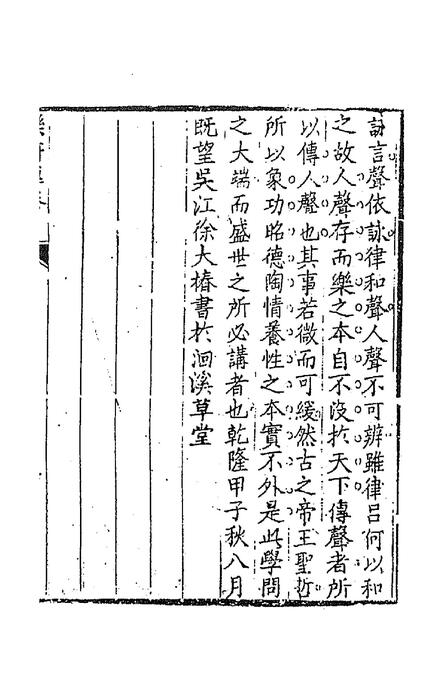 詠言聲依詠律和聲人聲不可辨雖律呂何以和
之故人聲存而樂之本自不沒於天下傳聲者所
以傳人聲也其事若微而可緩然古之帝王聖哲
所以象功昭德陶情養性之本實不外是此學問
之大端而盛世之所必講者也乾隆甲子秋八月
既望吳江徐大椿書於洄溪草堂